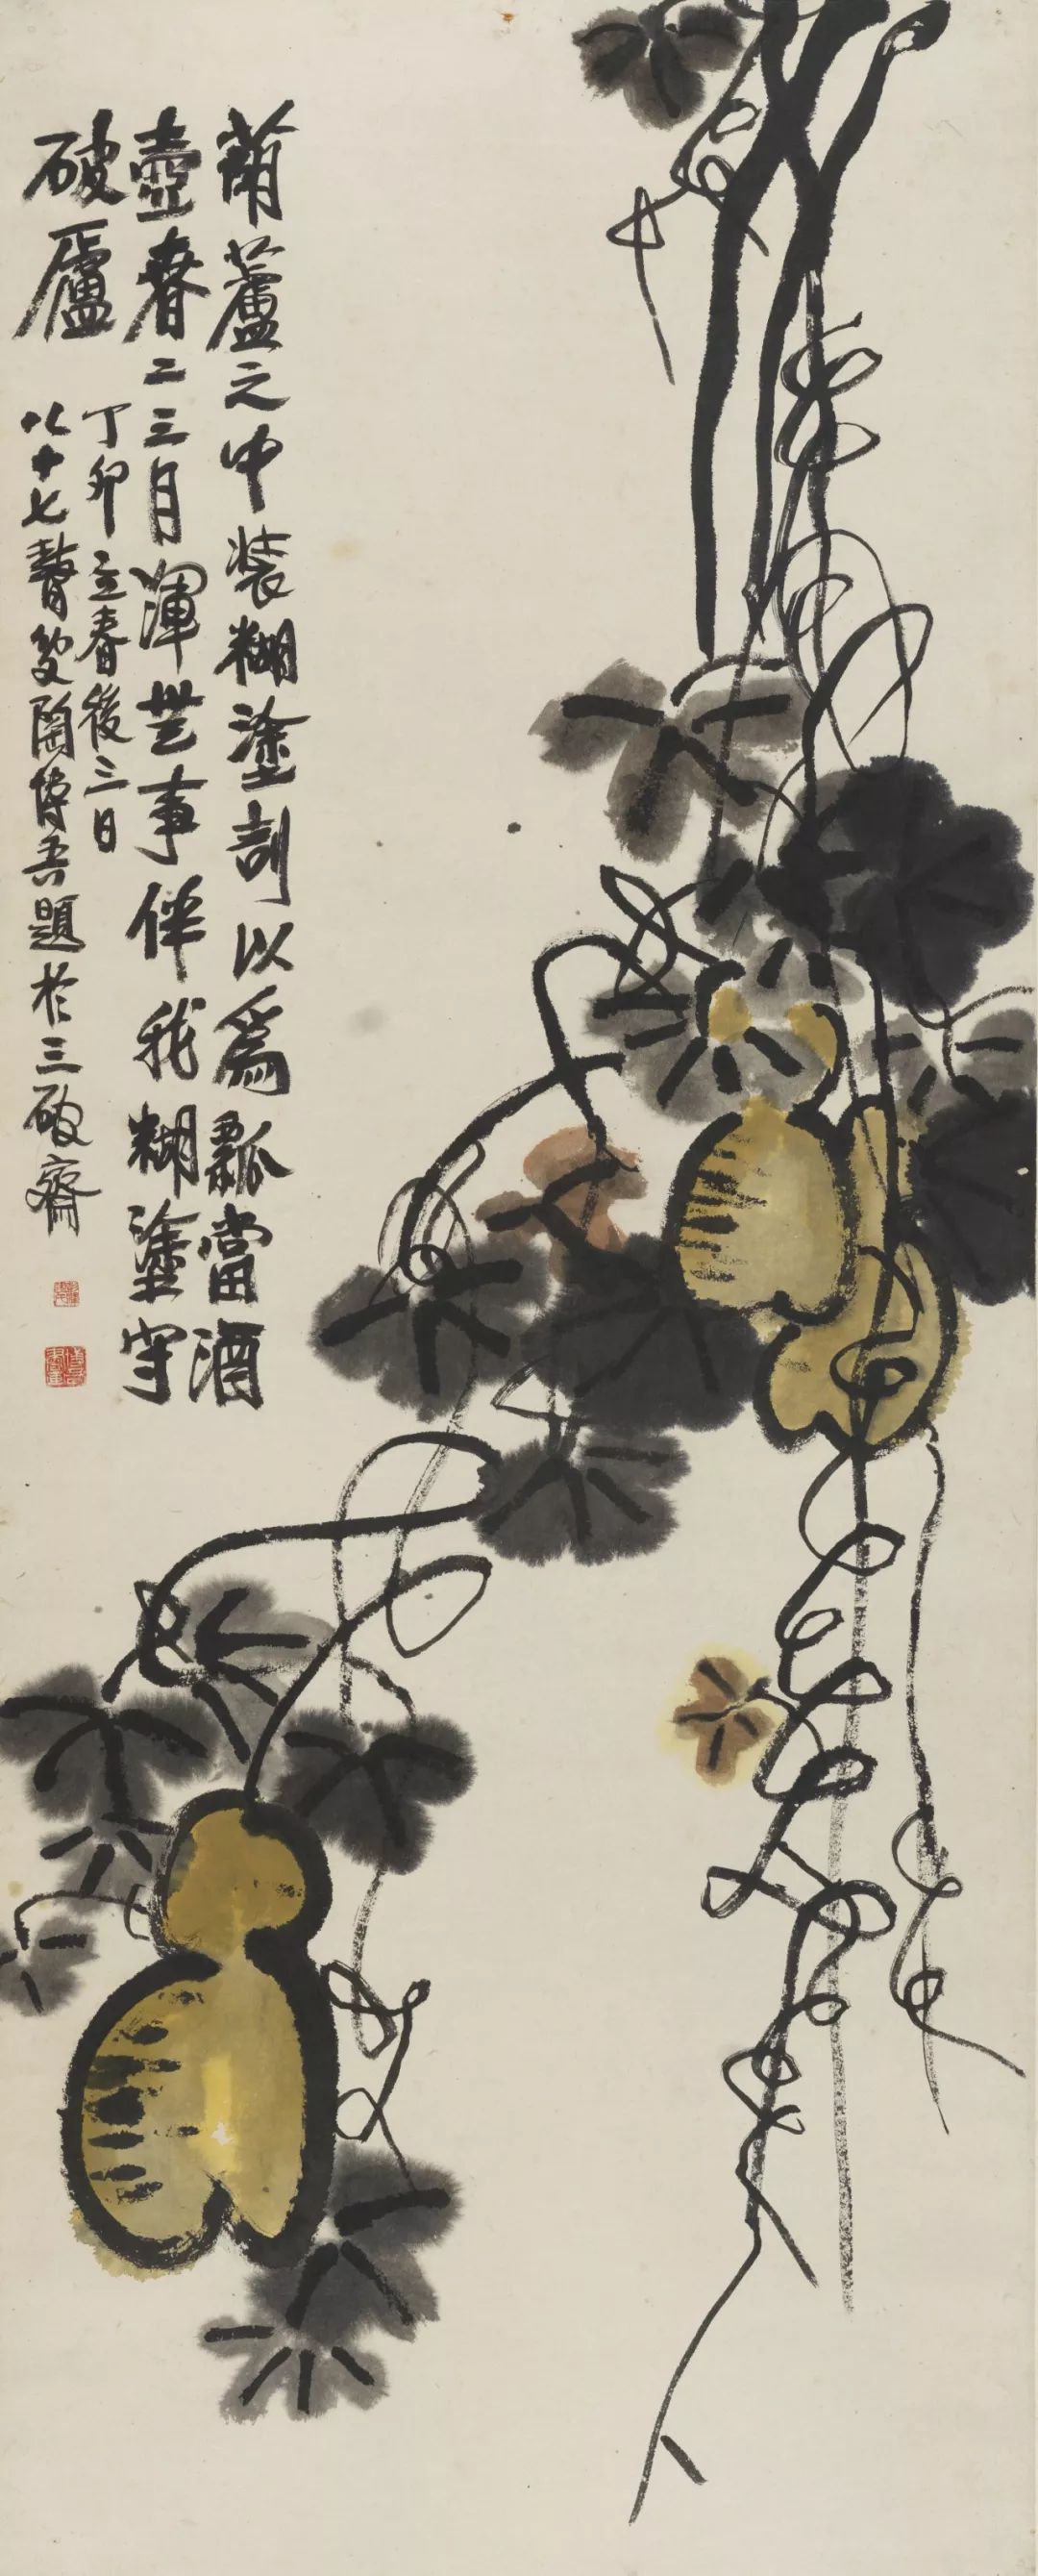 葫蘆之中裝糊塗剖以爲瓢當酒
壺春二三月渾無事伴我糊塗守
破廬
丁卯立春後三日
八十七瞽叟陶博吾題於三破齋